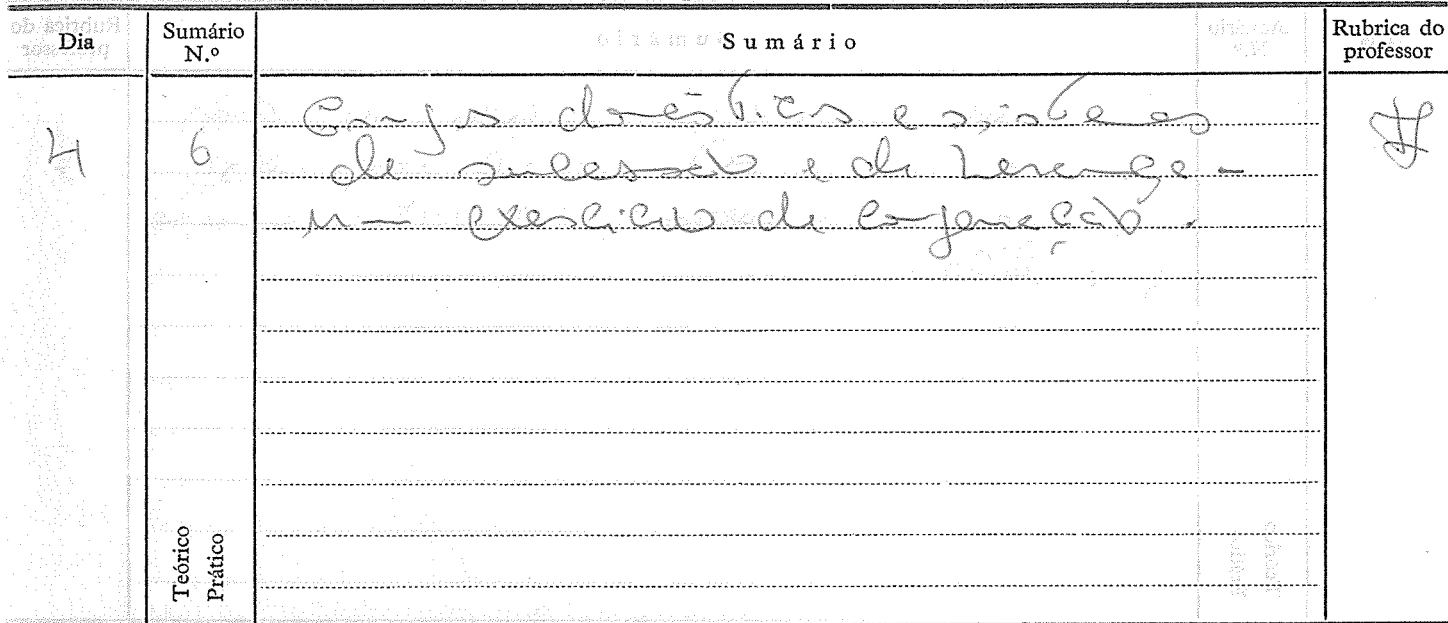 Dia
Sumário N.º
Sumário
Rubrica do professor
4
6
Grupos domésticos e sistemas
de sucessão e de herança -
um exercício de comparação.
Teórico
Prático